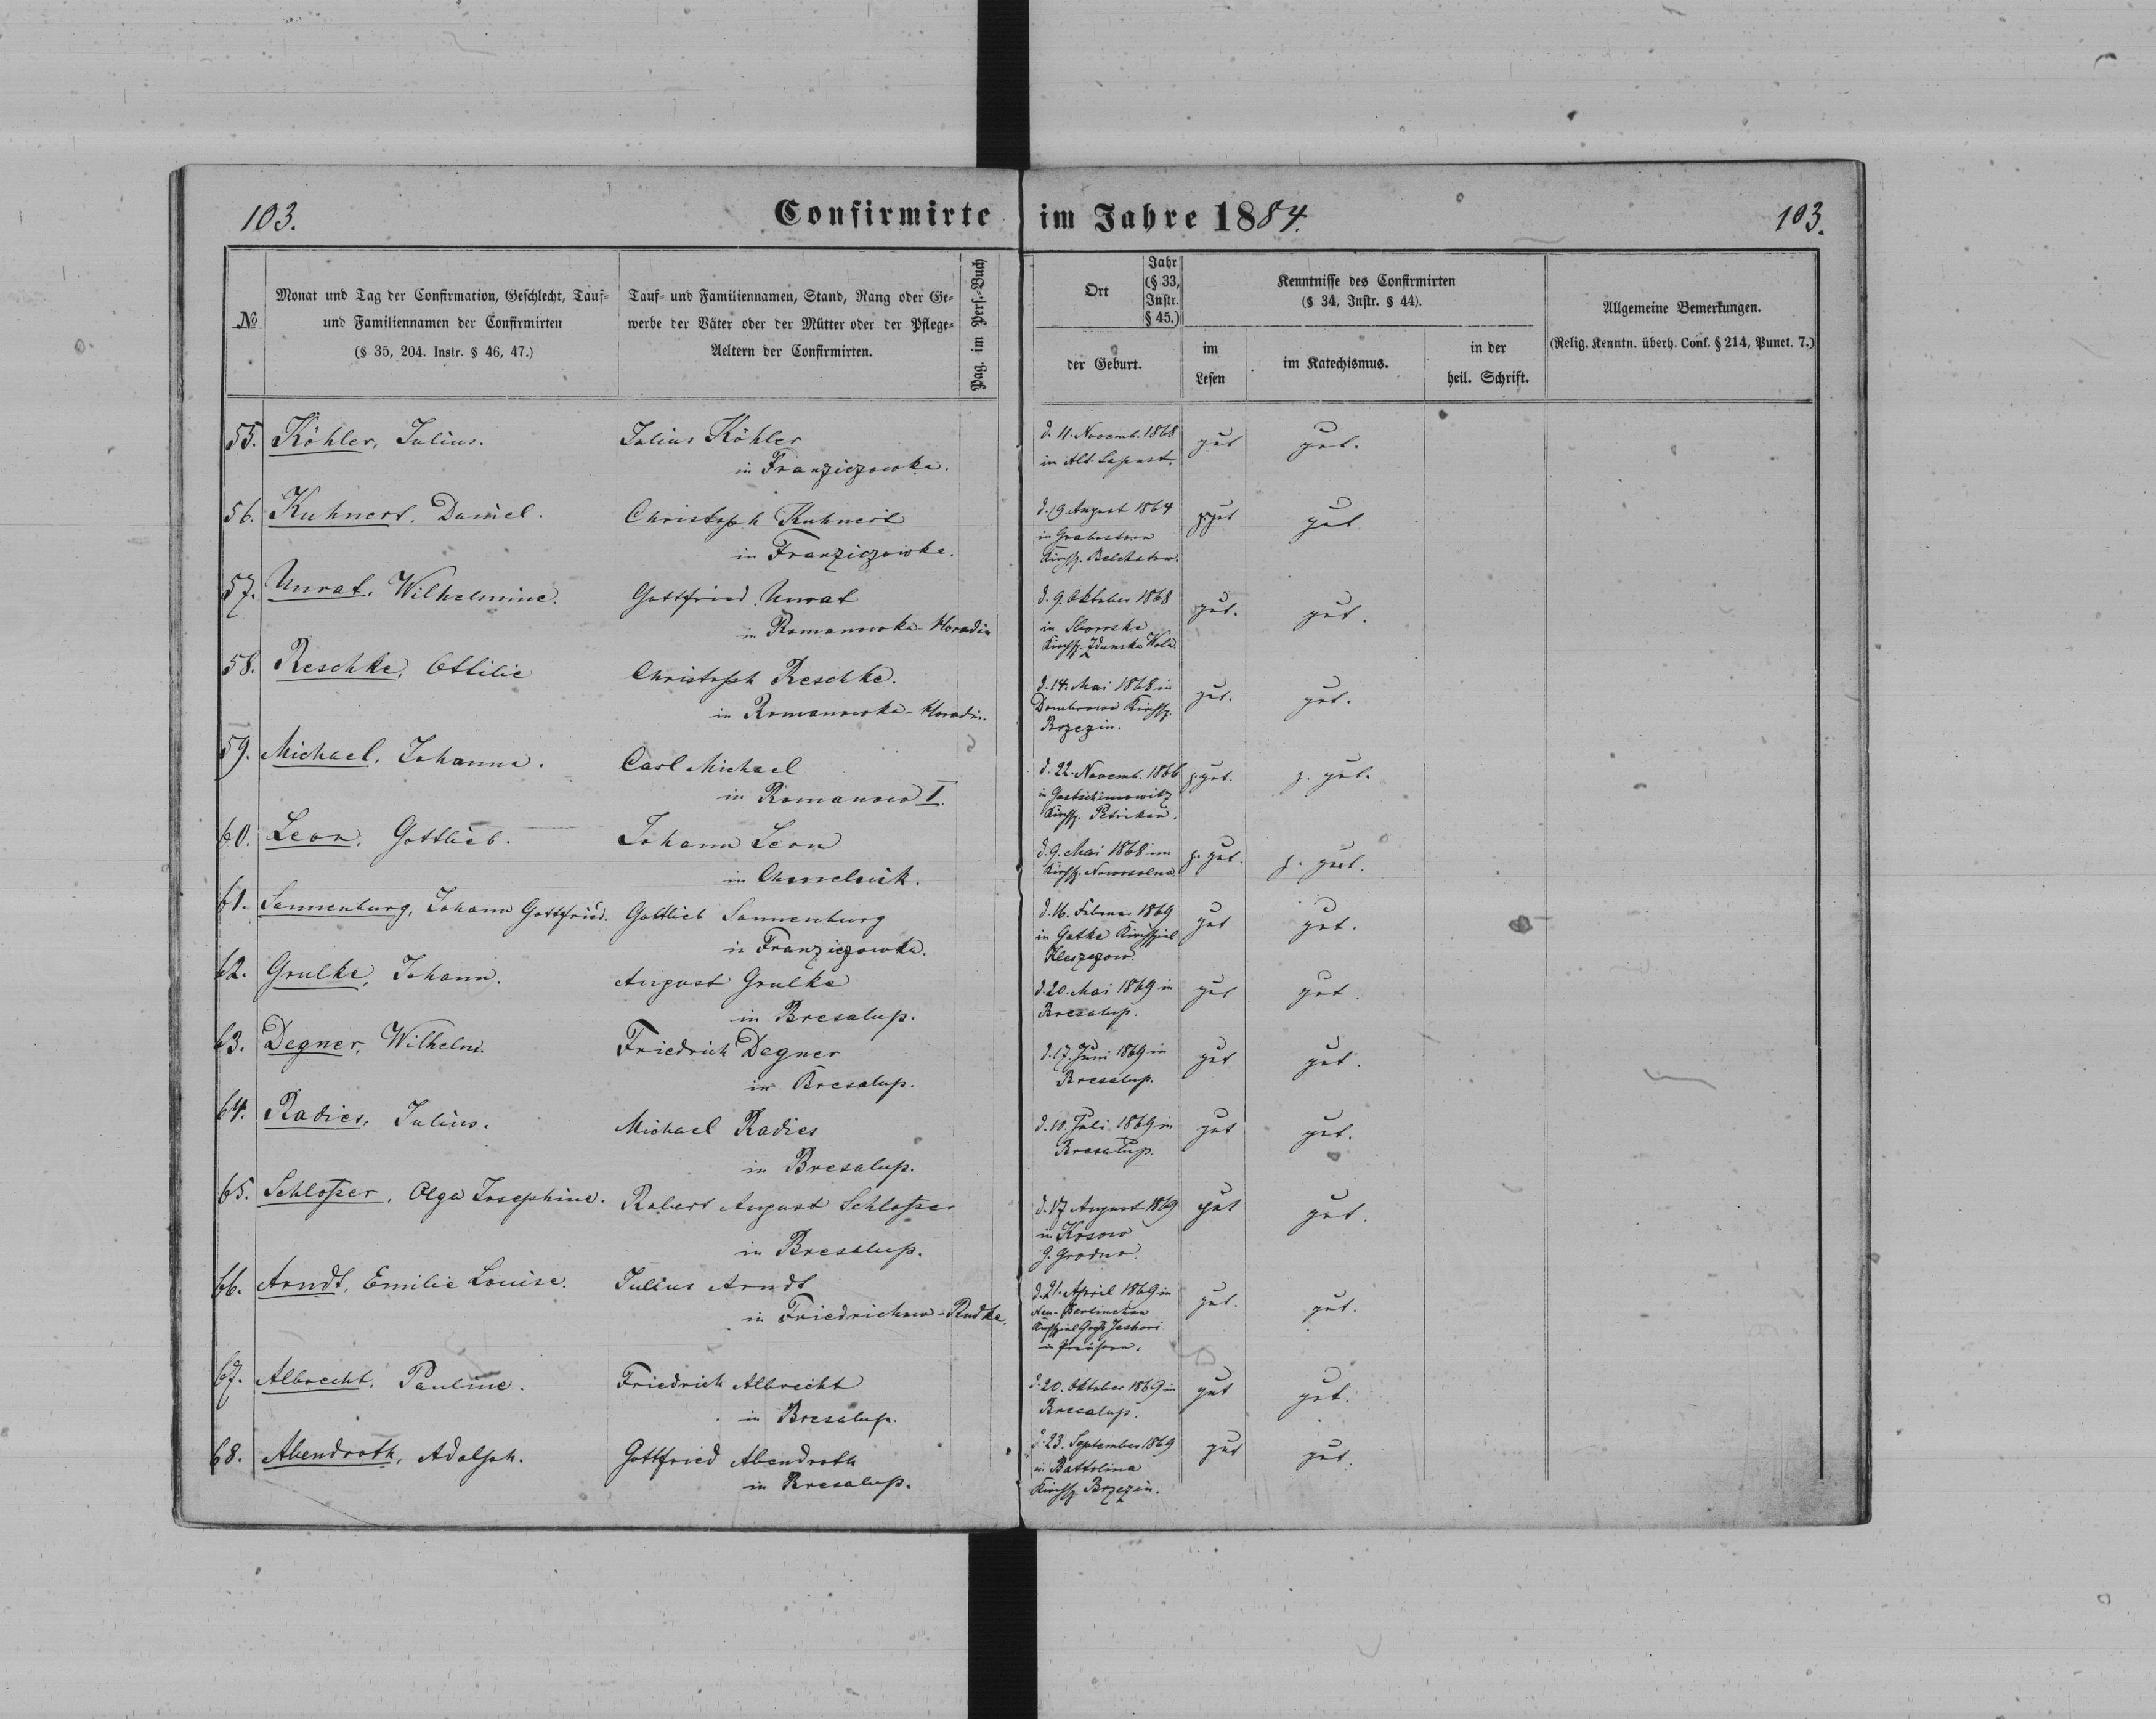 103.
Confirmirte im Jahre 1884.
103.
№
Monat und Tag der Confirmation, Geschlecht, Tauf-
und Familiennamen der Confirmirten
(§ 35, 204. Instr. § 46, 47.)
Tauf- und Familiennamen, Stand, Rang oder Ge-
werbe der Väter oder der Mütter oder der Pflege-
Aeltern der Confirmirten.
Pag. im Pers.-Buch
Ort
Jahr
(§ 33,
Instr.
§ 45.)
der Geburt.
Kenntnisse des Confirmirten
(§ 34, Instr. § 44).
im
Lesen
im Katechismus.
in der
heil. Schrift.
Allgemeine Bemerkungen.
(Relig. Kenntn. überh. Conf. § 214, Punct. 7.)
55. Köhler, Julius.
Julius Köhler
in Franziczowka.
d. 11. Novemb. 1868
in Alt-
gut
gut.
56. Kuhnert, Daniel.
Christoph Kuhnert
in Franziczowka.
d. 19. August 1864
in
Kirchsp. Belchatow.
z. gut
gut
57. Unrat, Wilhelmine.
Gottfried Unrat
in Romanowka-Horadin
d. 9. Oktober 1868
in
Kirchsp. Zdunska Wola.
gut.
gut.
58. Reschke, Ottilie
Christoph Reschke.
in Romanowka-Horadin.
d. 14. Mai 1868 in
Dombrowo Kirchsp.
Brzezin.
gut.
gut.
59. Michael, Johanna.
Carl Michael
in Romanow I.
d. 22. Novemb. 1866
in
Kirchsp. Petrikau.
z. gut.
z. gut.
60. Leon, Gottlieb.
Johann Leon
in
d. 9. Mai 1868 im
Kirchsp. Nowosolna
z. gut.
z. gut.
61. Sonnenburg, Johann Gottfried.
Gottlieb Sonnenburg
in Franziczowka.
d. 16. Februar 1869
in Gatka Kirchspiel
Kleszczow.
gut
gut.
62. Grulke, Johann.
August Grulke
in Bresalup.
d. 20. Mai 1869 in
Bresalup.
gut
gut.
63. Degner, Wilhelm.
Friedrich Degner
in Bresalup.
d. 17. Juni 1869 in
Bresalup.
gut
gut.
64. Radies, Julius.
Michael Radies
in Bresalup.
d. 10. Juli 1869 in
Bresalup.
gut
gut.
65. Schloßer, Olga Josephine.
Robert August Schloßer
in Bresalup.
d. 17 August 1869
in Kosowo
G. Grodno.
gut
gut.
66. Arndt, Emilie Louise.
Julius Arndt
in Friedrichow-Rudke.
d. 21. April 1869 in
Neu-
Kirchspiel Groß
in Preußen.
gut.
gut.
67. Albrecht, Pauline.
Friedrich Albrecht
in Bresalup.
d. 20. Oktober 1869 in
Bresalup.
gut
gut.
68. Abendroth, Adolph.
Gottfried Abendroth
in Bresalup.
d. 23. September 1869
in Battolina
Kirchsp. Brzezin.
gut
gut.